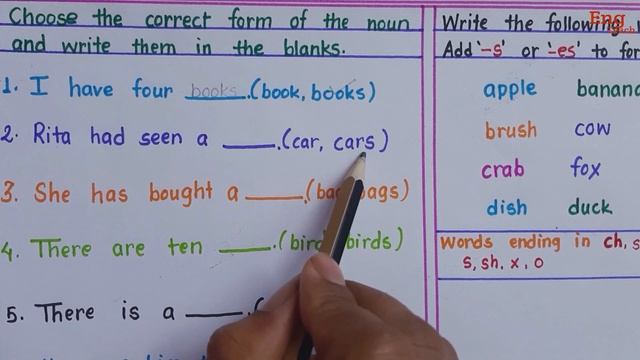 Choose the correct form of the noun
and write them in the blanks.
1. I have four books.(book, books)
2. Rita had seen a ____.(car, cars)
3. She has bought a ____.( bags)
4. There are ten ____.(bird birds)
5. There is a ____.(
Write the following
Add '-s' or '-es' to
apple
brush cow
crab fox
dish duck
Words ending in ch,
s, sh, x, o
Eng